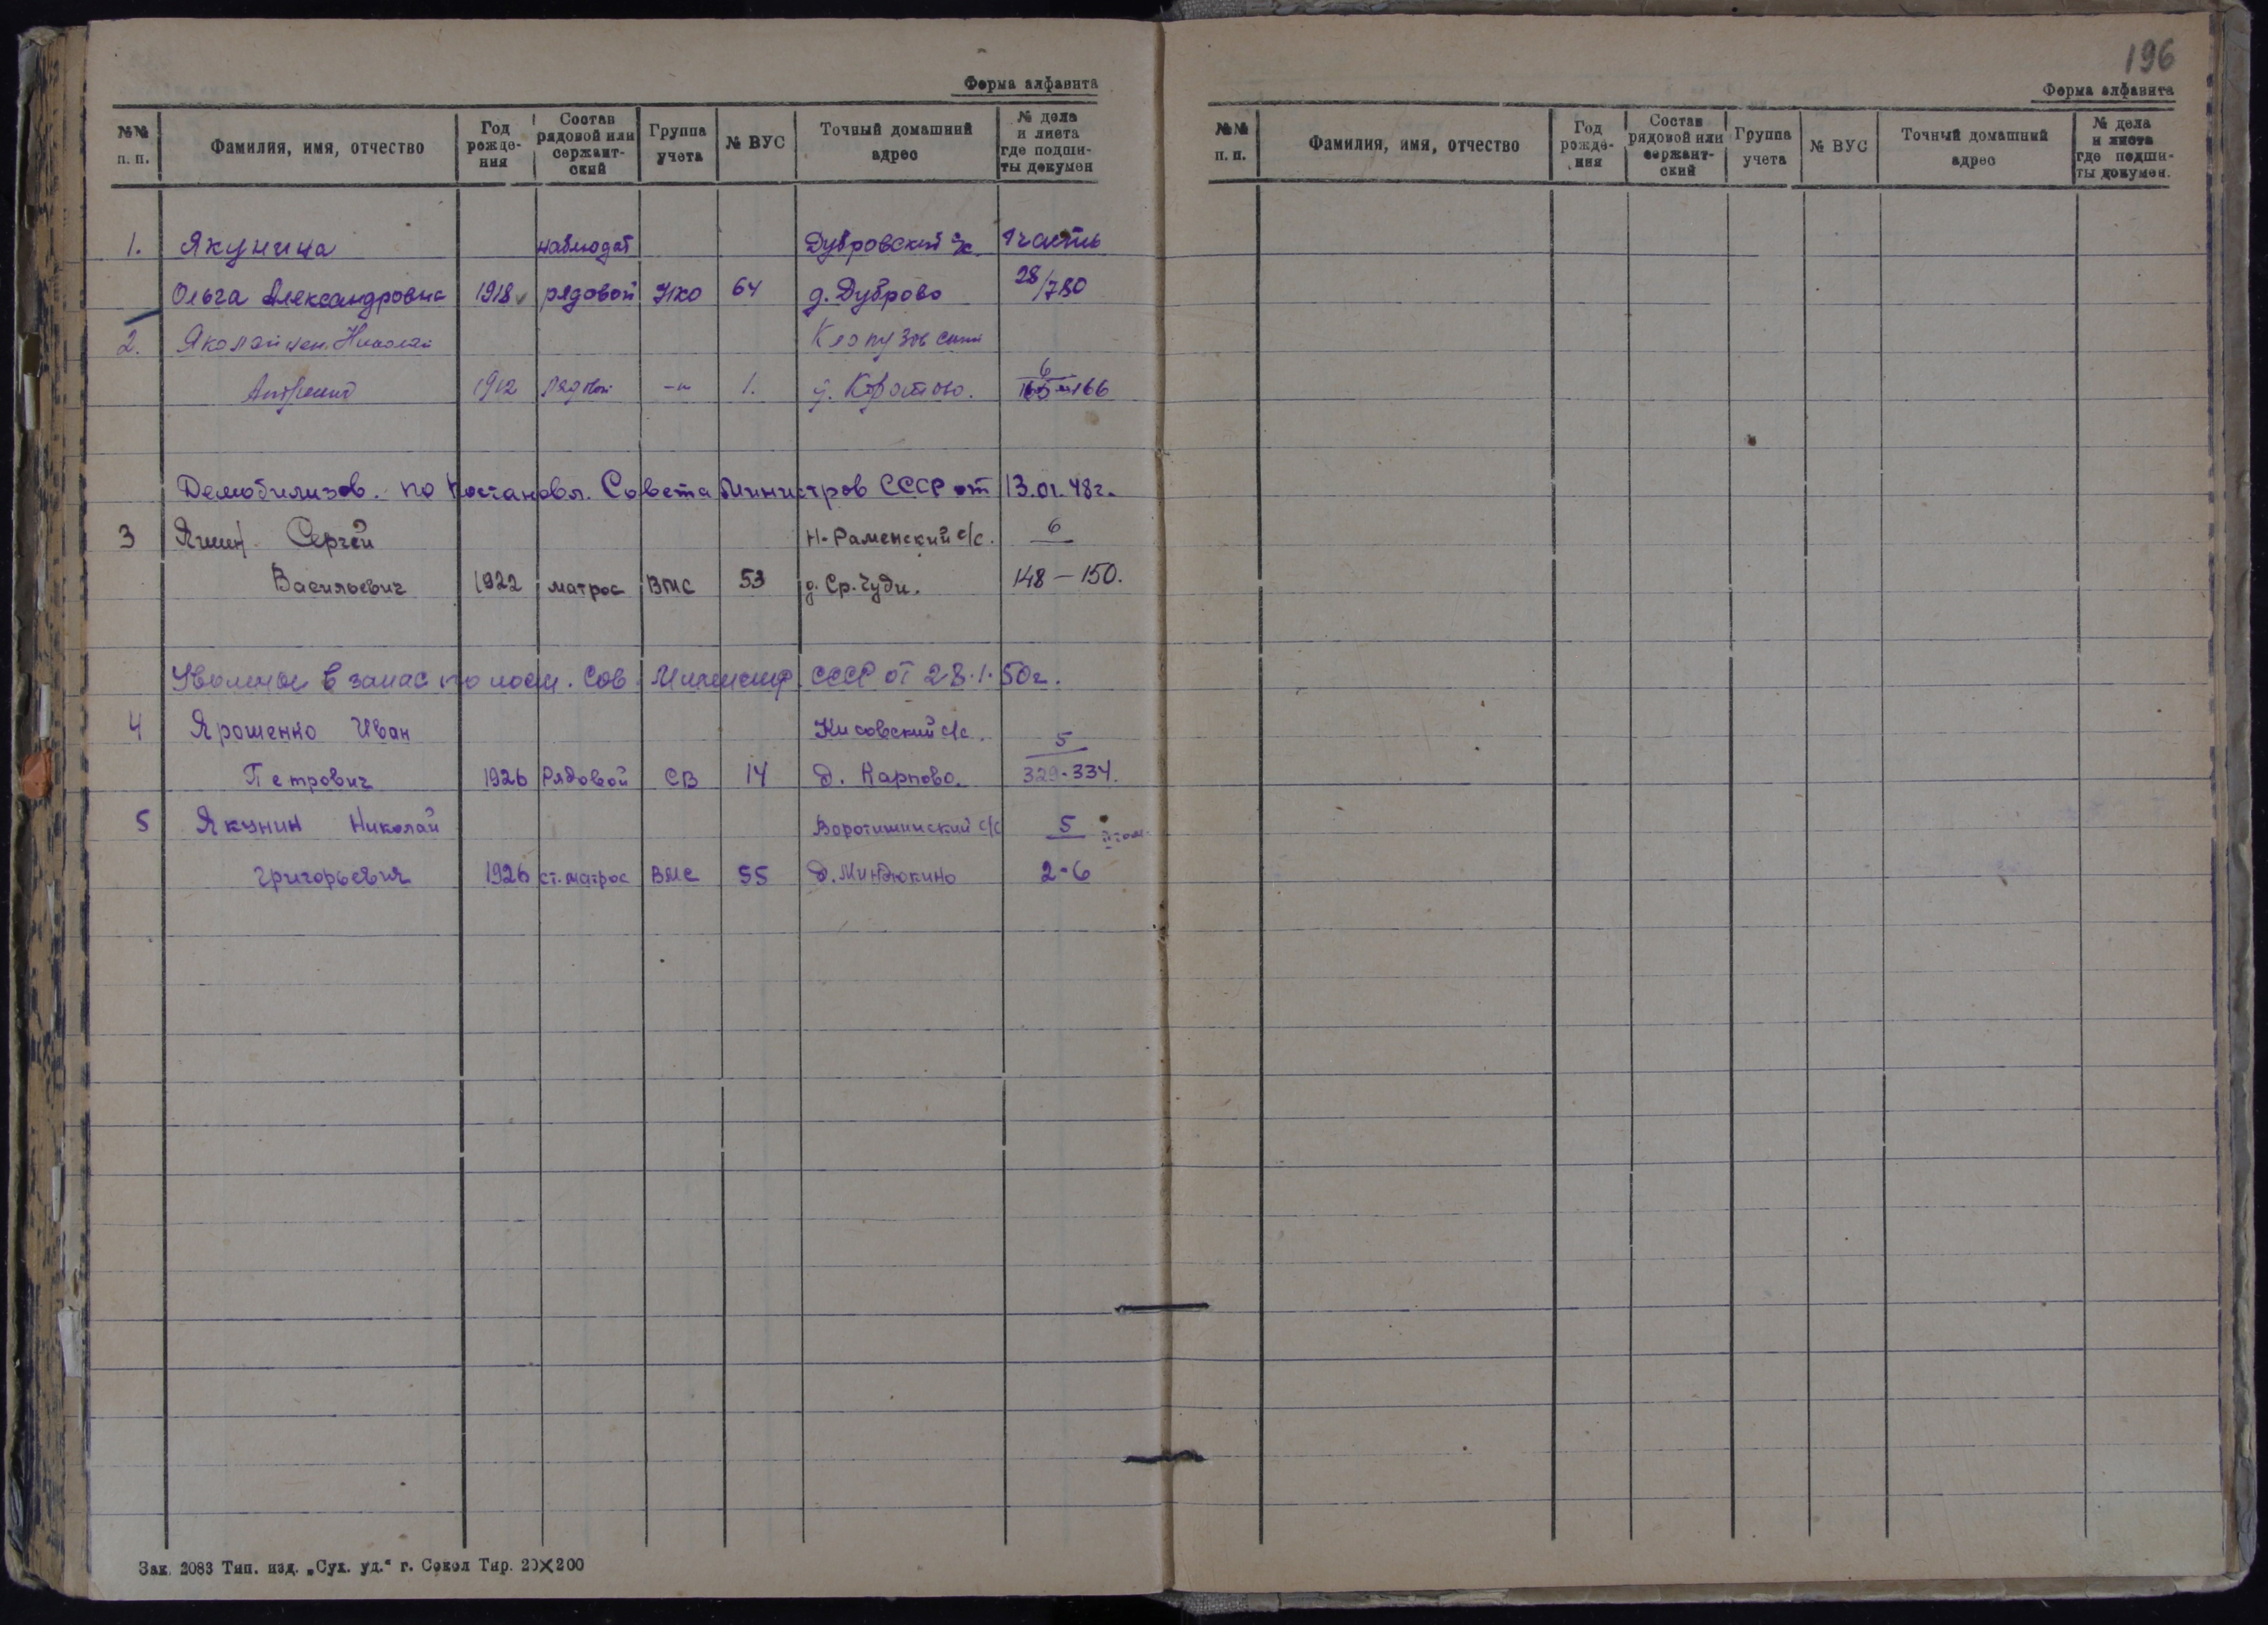 Форма алфавита
№№ п. п. Фамилия, имя, отчество Год рожде-ния Состав рядовой или сержант-ский Группа учета № ВУС Точный домашний адрес № дела и листа где подши-ты докумен
1. Якунина наблюдат Дубровский с/с. 1 часть
Ольга Александровна 1918 рядовой 64 д. Дуброво 28/780
2. Николай
1912 Рядовой -"- 1. 6
165-166
Демобилизов. по постановл. Совета Министров СССР от 13.01.48г.
3 Яшин Сергей Н-Раменский с/с. 6
Васильевич 1922 матрос ВМС 53 д. Ср. Чуди. 148-150.
в запас по пост. Сов. Министр. СССР от 28.1.50г.
4 Ярошенко Иван Кисовский с/с. 5
Петрович 1926 Рядовой СВ 14 д. Карпово. 329-334.
5 Якунин Николай Воротишинский с/с 5
Григорьевич 1926 ст. матрос ВМС 55 д. Миндюкино 2-6
Зак. 2083 Тип. изд. „Сух. уд.“ г. Сокол Тир. 20×200
196
Форма алфавита
№№ п. п. Фамилия, имя, отчество Год рожде-ния Состав рядовой или сержант-ский Группа учета № ВУС Точный домашний адрес № дела и листа где подши-ты докумен.